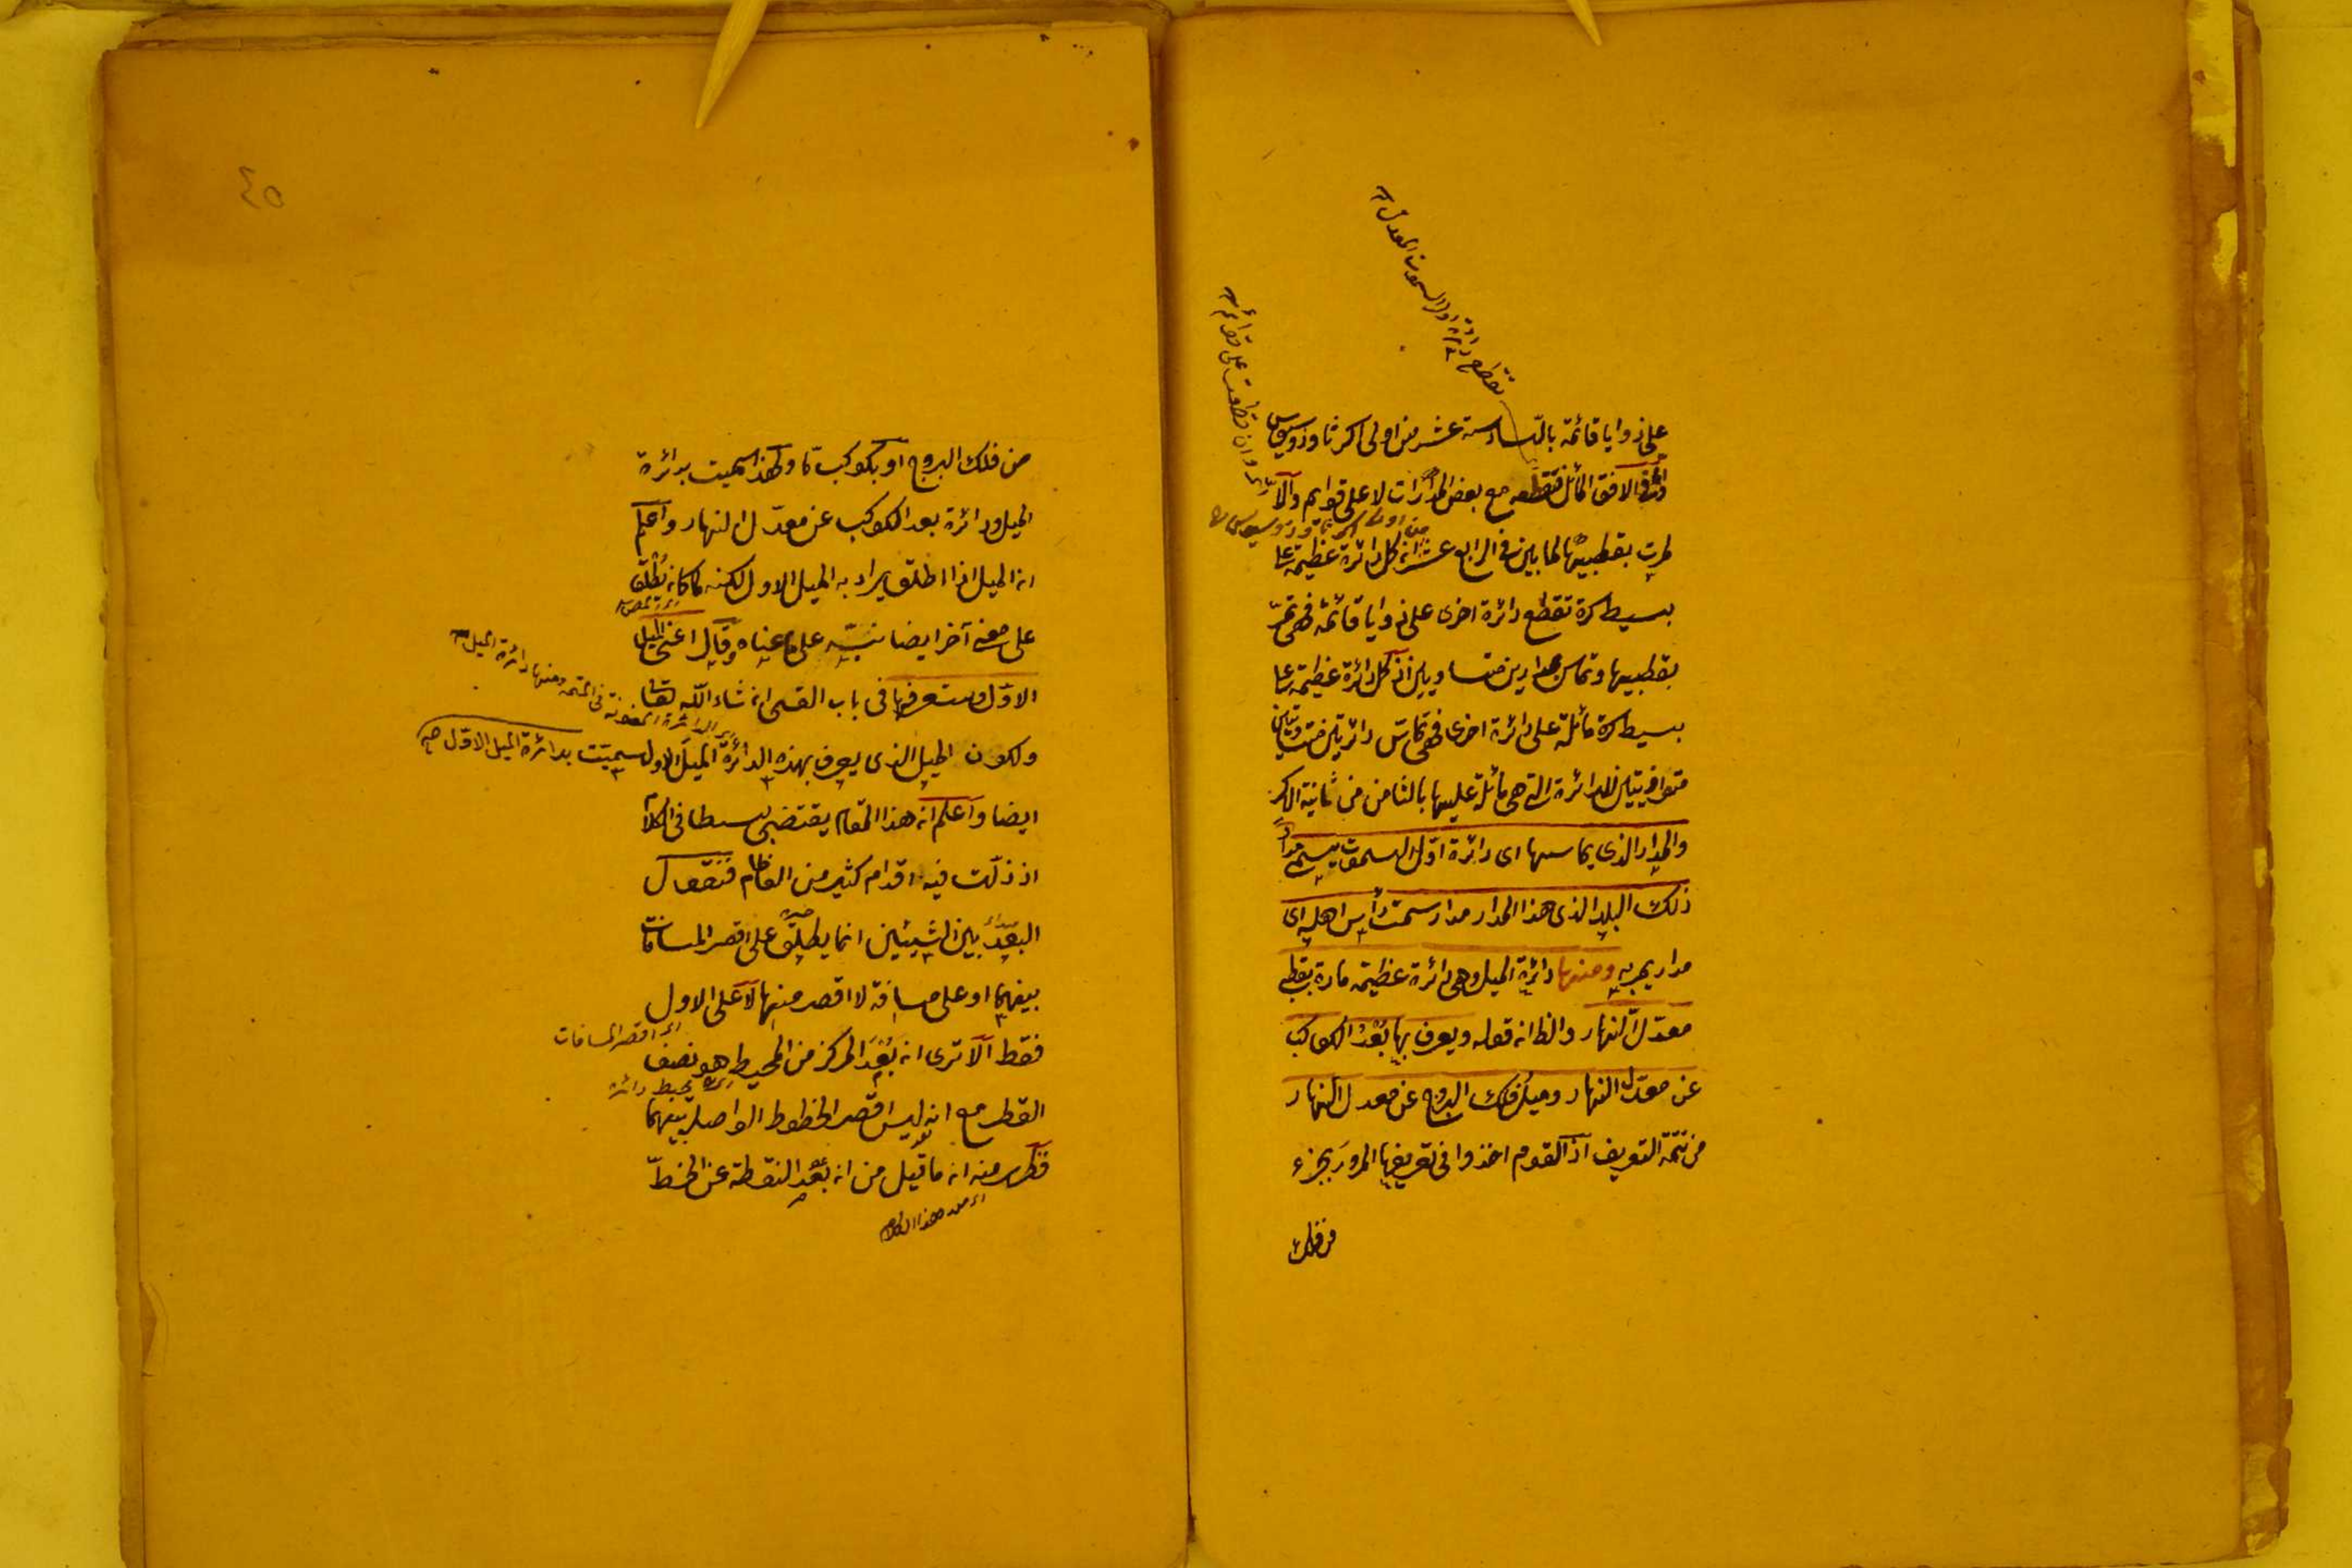 على زوايا قائمة بالسادسة عشر من اولى اكر ثاوذوسيوس
وفى الافق المائل فتقطعه مع بعض المدارات لا على قوايم والا
لمرت بقطبيها لما بين فى الرابع عشر ان كل دائرة عظيمة على
بسيط كرة تقطع دائرة اخرى على زوايا قائمة فهى تمر
بقطبيها وتماس مدارين متساويين اذ كل دائرة عظيمة على
بسيط كرة مائلة على دائرة اخرى فهى تماس دائرتين متساويتين
متوازيتين للدائرة التى هى مائلة عليها بالثامن من ثانية الاكر
والمدار الذى يماسها اى دائرة اول السموت يسمى مدار
ذلك البلد الذى هذا المدار مدار سمت رأس اهله اى
مدار يمر به ومنها دائرة الميل وهى دائرة عظيمة مارة بقطبى
معدل النهار والظ ان قوله ويعرف بها بعد الكواكب
عن معدل النهار وميل فلك البروج عن معدل النهار
من تتمة التعريف اذ القوم اخذوا فى تعريفها المرور بجزء
من فلك
تقاطع دائرة اول السموت المعدل
وان قطعت على قوائم
من اولى اكر ثاوذوسيوس
٤٥
من فلك البروج او بكوكب ما ولهذا سميت بدائرة
الميل ودائرة بعد الكوكب عن معدل النهار واعلم
ان الميل اذا اطلق يراد به الميل الاول لكنه لما كان يُطلق
على معنى آخر ايضا نبّه على ما عناه وقال اعنى الميل
الاول وستعرفها فى باب القسى ان شاء الله تعالى
ولكون الميل الذى يعرف بهذه الدائرة الميل الاول سميت بدائرة الميل الاول
ايضا واعلم ان هذا المقام يقتضى بسطا فى الكلام
اذ زلت فيه اقدام كثير من العظام فنقول
البعد بين الشيئين انما يطلق على اقصر المسافات
بينهما او على مسافة لا اقصر منها لا على الاول
فقط ألا ترى ان بُعْدَ المركز من المحيط هو نصف
القطر مع انه ليس اقصر الخطوط الواصلة بينهما
فظهر منه ان ما قيل من ان بُعْد النقطة عن الخط
دائرة الميل
اى اقصر المسافات
محيط دائرة
اى من هذا الكلام